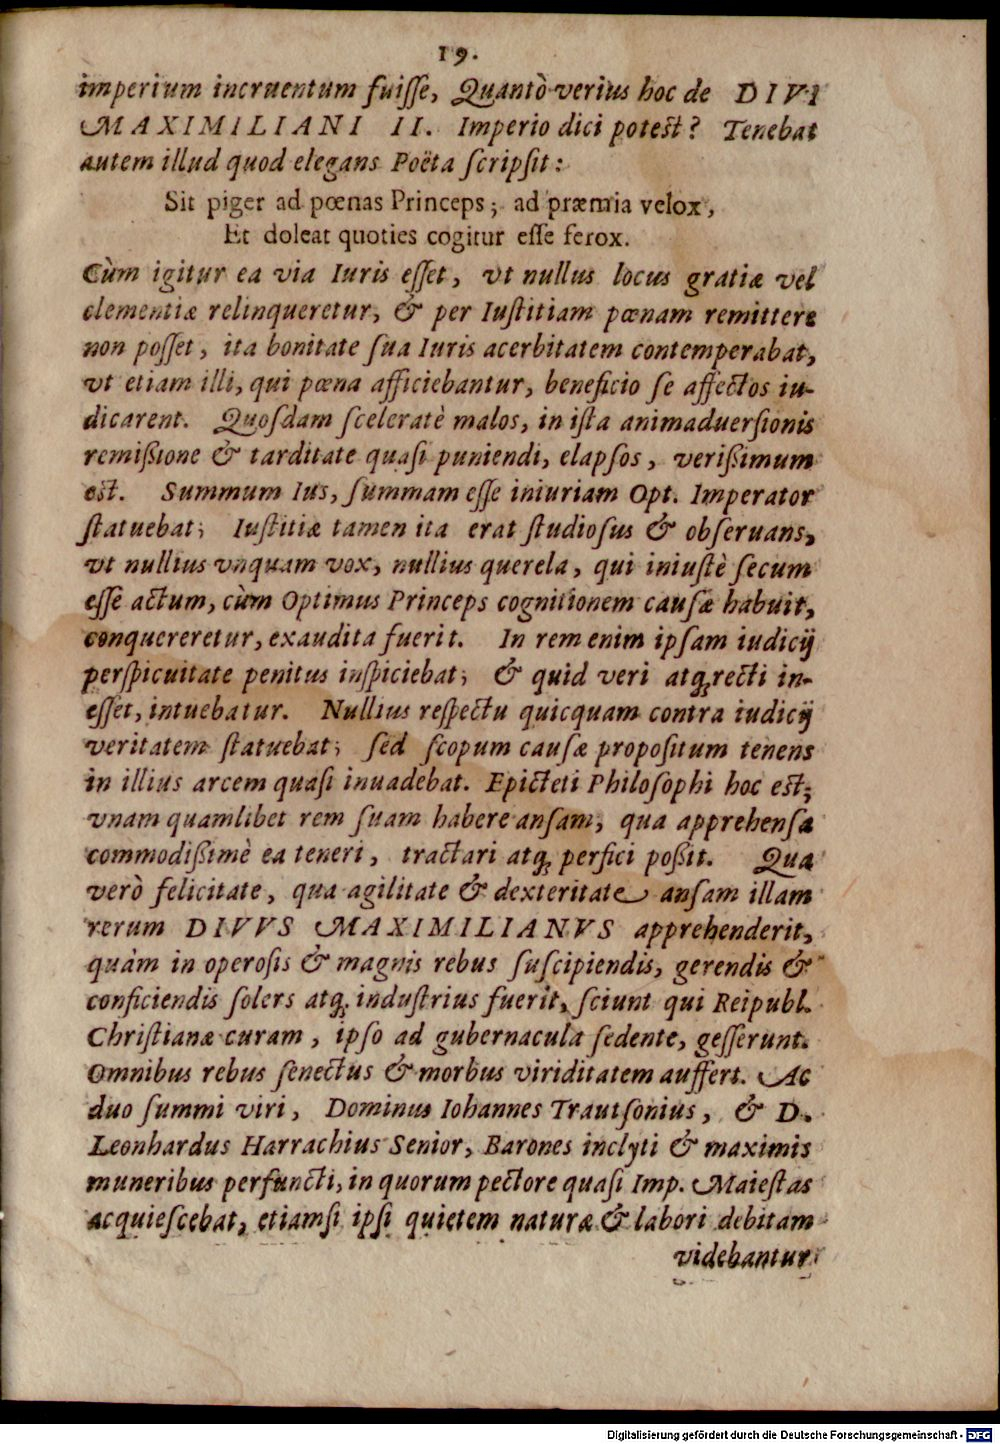 19.
imperium incruentum fuiſſe, Quantò verius hoc de DIVI
MAXIMILIANI II. Imperio dici poteſt? Tenebat
autem illud quod elegans Poëta ſcripſit:
Sit piger ad pœnas Princeps; ad præmia velox,
Et doleat quoties cogitur eſſe ferox.
Cùm igitur ea via Iuris eſſet, vt nullus locus gratiæ vel
clementiæ relinqueretur, & per Iuſtitiam pœnam remittere
non poſſet, ita bonitate ſua Iuris acerbitatem contemperabat,
vt etiam illi, qui pœna afficiebantur, beneficio ſe affectos iu-
dicarent. Quoſdam ſceleratè malos, in iſta animaduerſionis
remißione & tarditate quaſi puniendi, elapſos, verißimum
est. Summum Ius, ſummam eſſe iniuriam Opt. Imperator
ſtatuebat; Iuſtitiæ tamen ita erat ſtudioſus & obſeruans,
vt nullius vnquam vox, nullius querela, qui iniuſtè ſecum
eſſe actum, cùm Optimus Princeps cognitionem cauſæ habuit,
conquereretur, exaudita fuerit. In rem enim ipſam iudicij
perſpicuitate penitus inſpiciebat; & quid veri atq́; recti in-
eſſet, intuebatur. Nullius reſpectu quicquam contra iudicij
veritatem ſtatuebat; ſed ſcopum cauſæ propoſitum tenens
in illius arcem quaſi inuadebat. Epicteti Philoſophi hoc eſt;
vnam quamlibet rem ſuam habere anſam, qua apprehenſa
commodißimè ea teneri, tractari atq́; perfici poßit. Qua
verò felicitate, qua agilitate & dexteritate anſam illam
rerum DIVVS MAXIMILIANVS apprehenderit,
quàm in operoſis & magnis rebus ſuſcipiendis, gerendis &
conficiendis ſolers atq́; induſtrius fuerit, ſciunt qui Reipubl.
Chriſtianæ curam, ipſo ad gubernacula ſedente, geſſerunt.
Omnibus rebus ſenectus & morbus viriditatem auffert. Ac
duo ſummi viri, Dominus Iohannes Trautſonius, & D.
Leonhardus Harrachius Senior, Barones inclyti & maximis
muneribus perfuncti, in quorum pectore quaſi Imp. Maieſtas
acquieſcebat, etiamſi ipſi quietem naturæ & labori debitam
videbantur
Digitalisierung gefördert durch die Deutsche Forschungsgemeinschaft - DFG